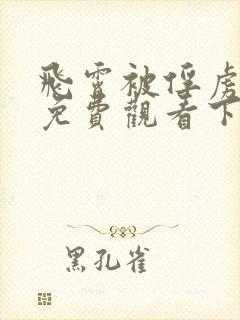 飛雷被俘虜
免費觀看下
黑孔雀